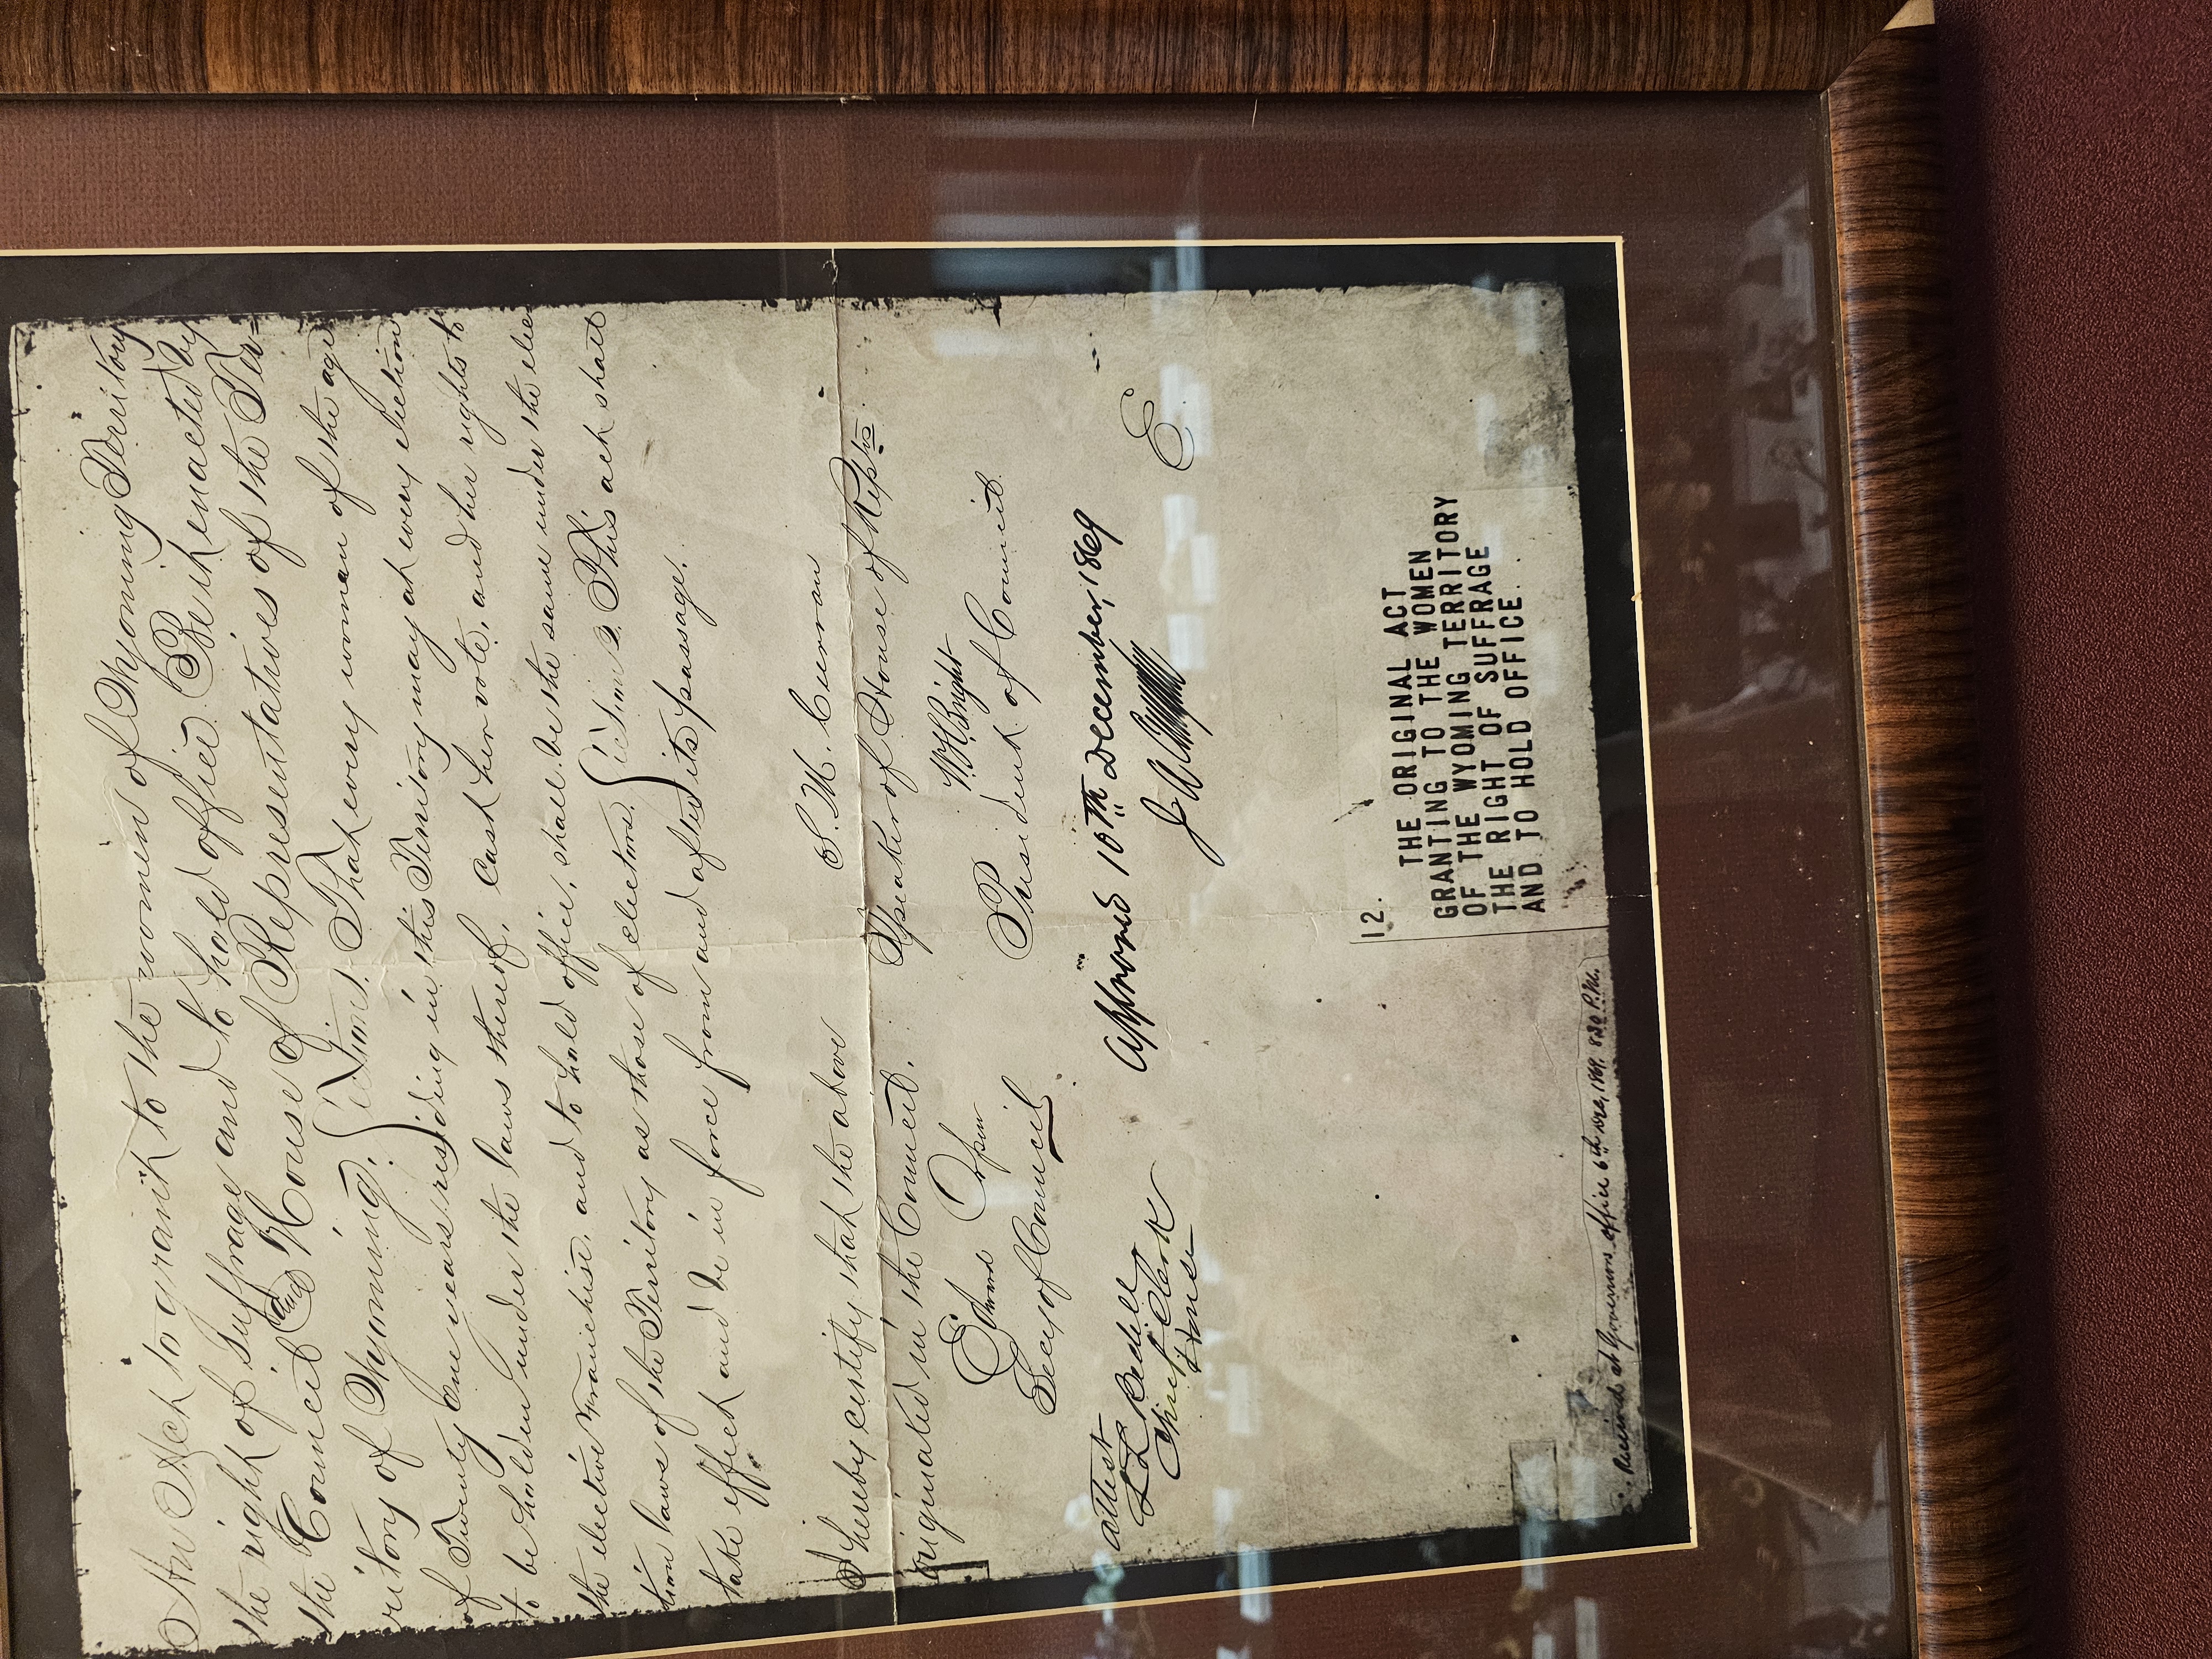 An Act to grant to the women of Wyoming Territory
the right of suffrage and to hold office. Be it enacted by
the Council and House of Representatives of the Ter=
ritory of Wyoming. Section 1. That every woman of the age
of Twenty One years residing in this Territory may at every election
to be holden under the laws thereof, cast her vote, and her rights to
the elective Franchise, and to hold office, shall be the same under the elec
tion laws of the Territory as those of electors. Section 2. This act shall
take effect and be in force from and after its passage.
S. M. Curran
I hereby certify that the above
Speaker of House of Reptvs
originated in the Council.
W. H. Bright
Edward Orpen
President of Council.
Secy of Council
Approved 10th December, 1869
Attest
J A Campbell
L L Bedell
Chief Clerk
House
12.
THE ORIGINAL ACT
GRANTING TO THE WOMEN
OF THE WYOMING TERRITORY
THE RIGHT OF SUFFRAGE
AND TO HOLD OFFICE.
Received at Governors office 6th Dec, 1869. 8 30 P.M.